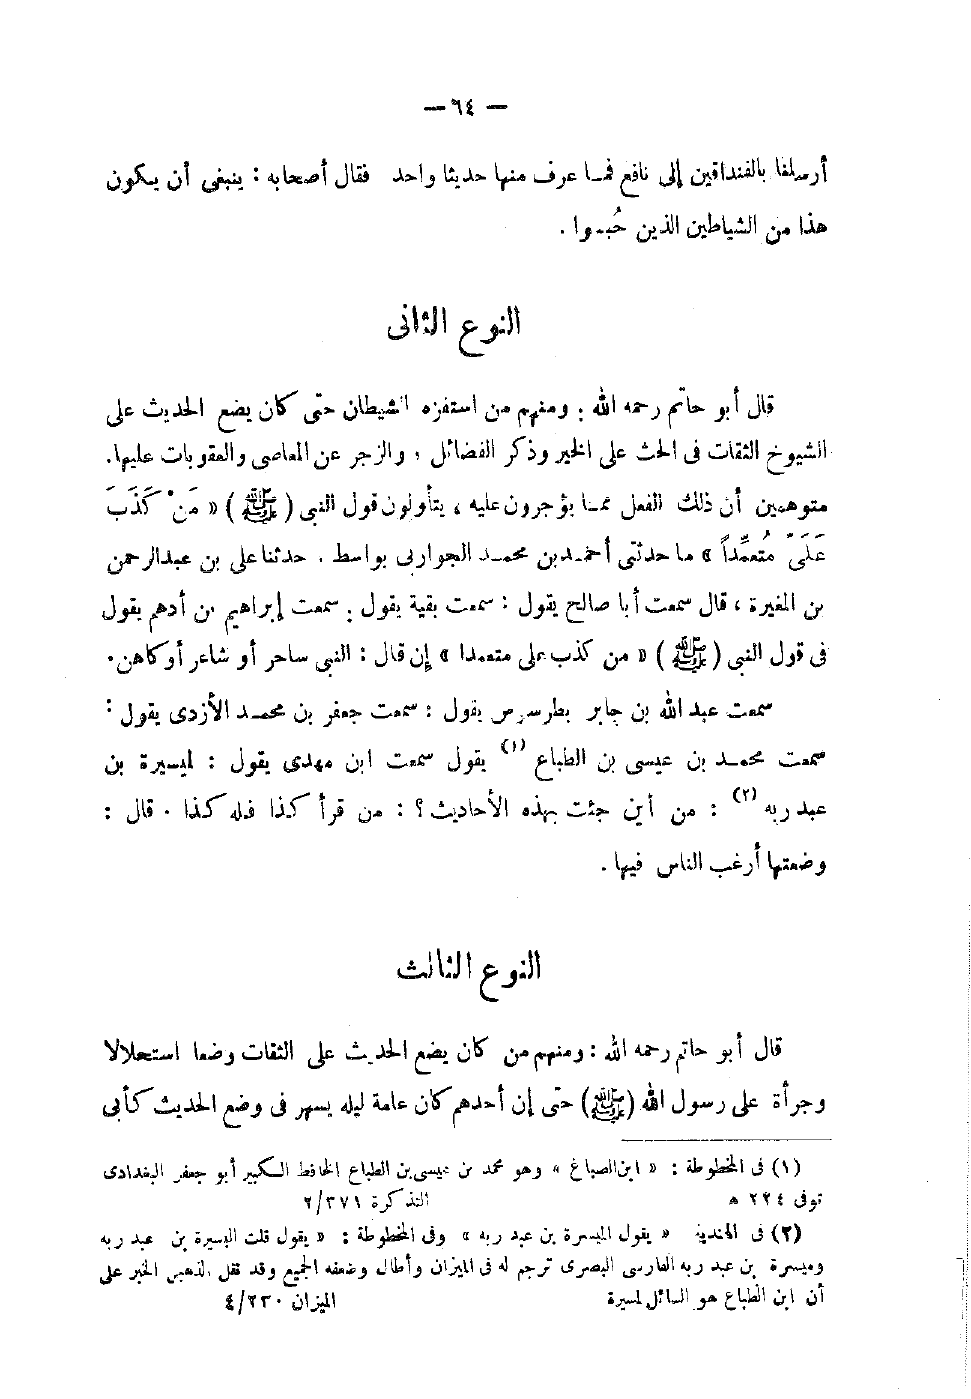 — ٦٤ —
أرسلنا بالفنداقين إلى نافع فما عرف منها حديثا واحد فقال أصحابه : ينبغى أن يكون
هذا من الشياطين الذين حُبسوا .
النوع الثانى
قال أبو حاتم رحمه الله : ومنهم من استفزه الشيطان حتى كان يضع الحديث على
الشيوخ الثقات فى الحث على الخير وذكر الفضائل ، والزجر عن المعاصى والعقوبات عليها .
متوهمين أن ذلك الفعل مما يؤجرون عليه ، يتأولون قول النبى (ﷺ) « مَنْ كَذَبَ
عَلَىَّ مُتَعَمِّداً » ما حدثنى أحمد بن محمد الجواربى بواسط . حدثنا على بن عبدالرحمن
بن المغيرة ، قال سمعت أبا صالح يقول : سمعت بقية يقول : سمعت إبراهيم بن أدهم يقول
فى قول النبى (ﷺ) « من كذب على متعمدا » إن قال : النبى ساحر أو شاعر أو كاهن .
سمعت عبد الله بن جابر بطرسوس يقول : سمعت جعفر بن محمد الأزدى يقول :
سمعت محمد بن عيسى بن الطباع (١) يقول سمعت ابن مهدى يقول : ليسيرة بن
عبد ربه (٢) : من أين جئت بهذه الأحاديث ؟ : من قرأ كذا فله كذا . قال :
وضعتها أرغب الناس فيها .
النوع الثالث
قال أبو حاتم رحمه الله : ومنهم من كان يضع الحديث على الثقات وضعا استحلالا
وجرأة على رسول الله (ﷺ) حتى إن أحدهم كان عامة ليله يسهر فى وضع الحديث كأبى
(١) فى المخطوطة : « ابن الصباغ » وهو محمد بن عيسى بن الطباع الحافظ الكبير أبو جعفر البغدادى
توفى ٢٢٤ ه التذكرة ٢/٣٧١
(٢) فى الهندية « يقول الميسرة بن عبد ربه » وفى المخطوطة : « يقول قلت اليسيرة بن عبد ربه
وميسرة بن عبد ربه الفارسى البصرى ترجم له فى الميزان وأطال وضعفه الجميع وقد نقل الذهبى الخبر على
أن ابن الطباع هو السائل لمسيرة الميزان ٤/٢٣٠